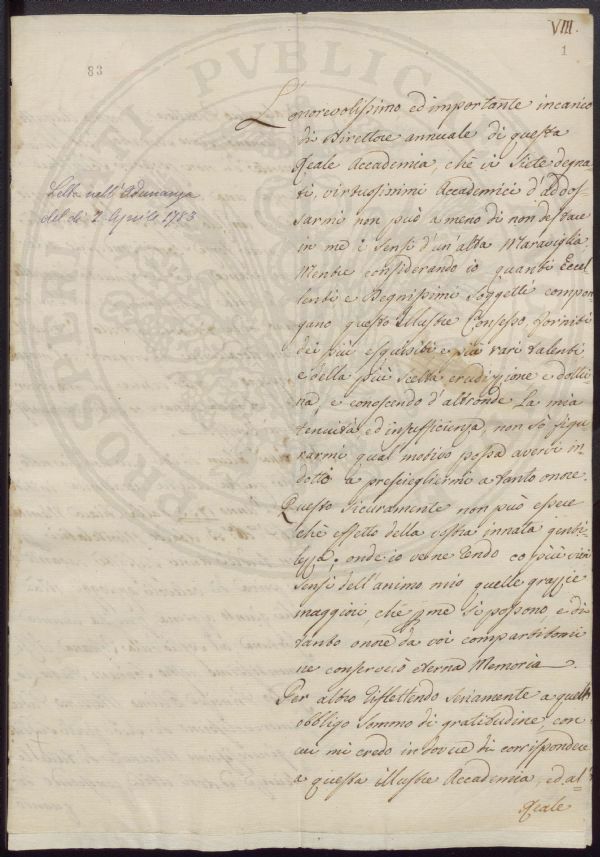 VIII.
1
83
L'onorevolissimo ed importante incarico
di Direttore annuale di questa
Reale Accademia, chè vi siete degna-
ti, virtuosissimi Accademici d'addos-
sarmi non può a meno di non destare
in me i sensi d'un'alta Maraviglia
Mentre considerando io quanti Eccel-
lenti e Degnissimi Soggetti compon-
gano questo illustre Consesso, forniti
dei più esquisiti e più rari talenti
e della più scelta erudizzione e dottri-
na, e conoscendo d'altronde la mia
tenuità ed insufficienza, non sò figu-
rarmi qual motivo possa avervi in-
dotti a prescieglierMi a tanto onore.
Questo sicuramente non può essere
chè effetto della vostra innata genti-
lezza: onde io ve ne rendo co' più vivi
sensi dell'animo mio quelle grazzie
maggiori, chè p me si possono, e di
tanto onore da voi compartitomi
ne conserverò eterna Memoria.
Per altro riflettendo seriamente a quell'
obbligo sommo di gratitudine, con
cui mi credo in dovere di corrispondere
a questa illustre Accademia, ed al
Reale
Letta nell'Adunanza
del dì 2 Aprile 1783
PROSPERITATI PVBLICAE